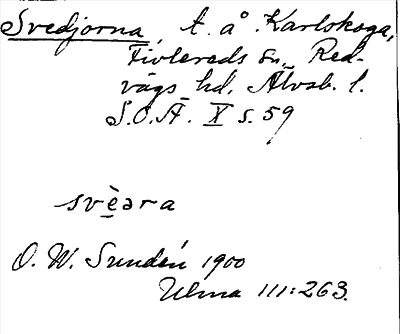 Svedjorna, t. å Karlskoga,
Fivlereds sn, Red-
vägs hd, Älvsb. l.
S.O.Ä. X s. 59
svèara
O. W. Sundén 1900
Ulma 111:263.